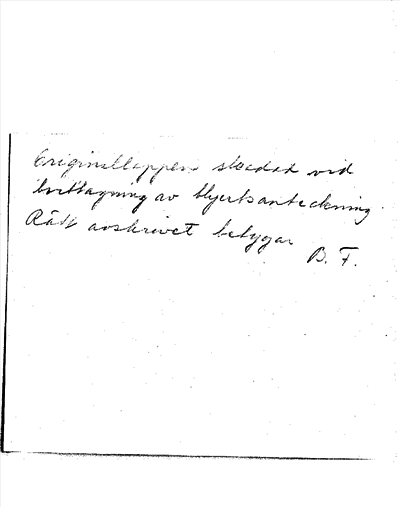 Originallappen skadad vid
borttagning av blyertsanteckning.
Rätt avskrivet betygar
B. F.